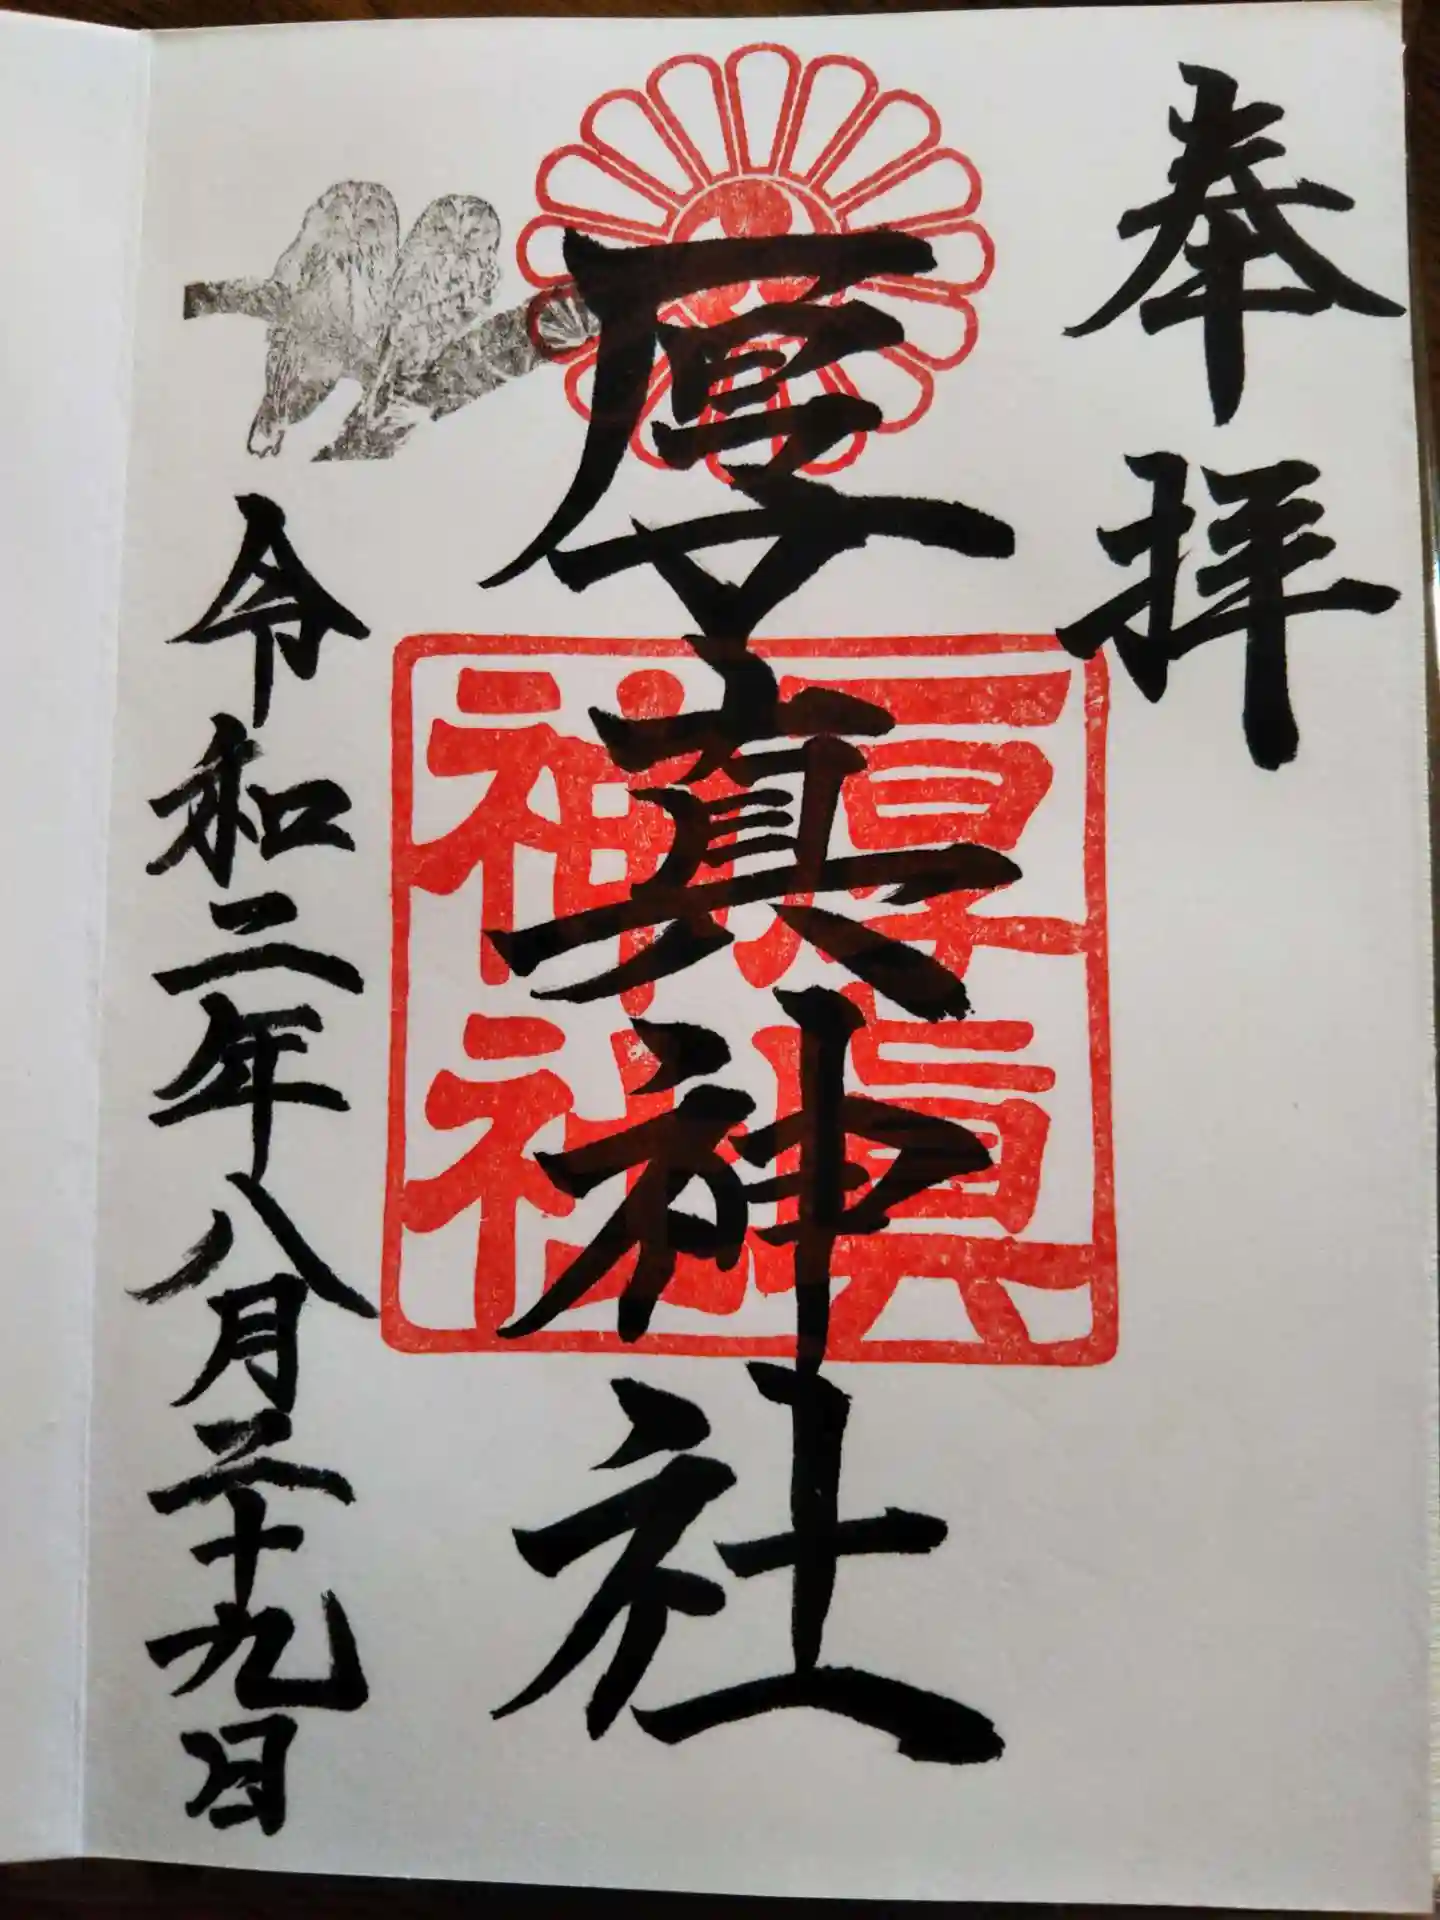 奉拝
厚真神社
厚眞
神社
令和二年八月二十九日